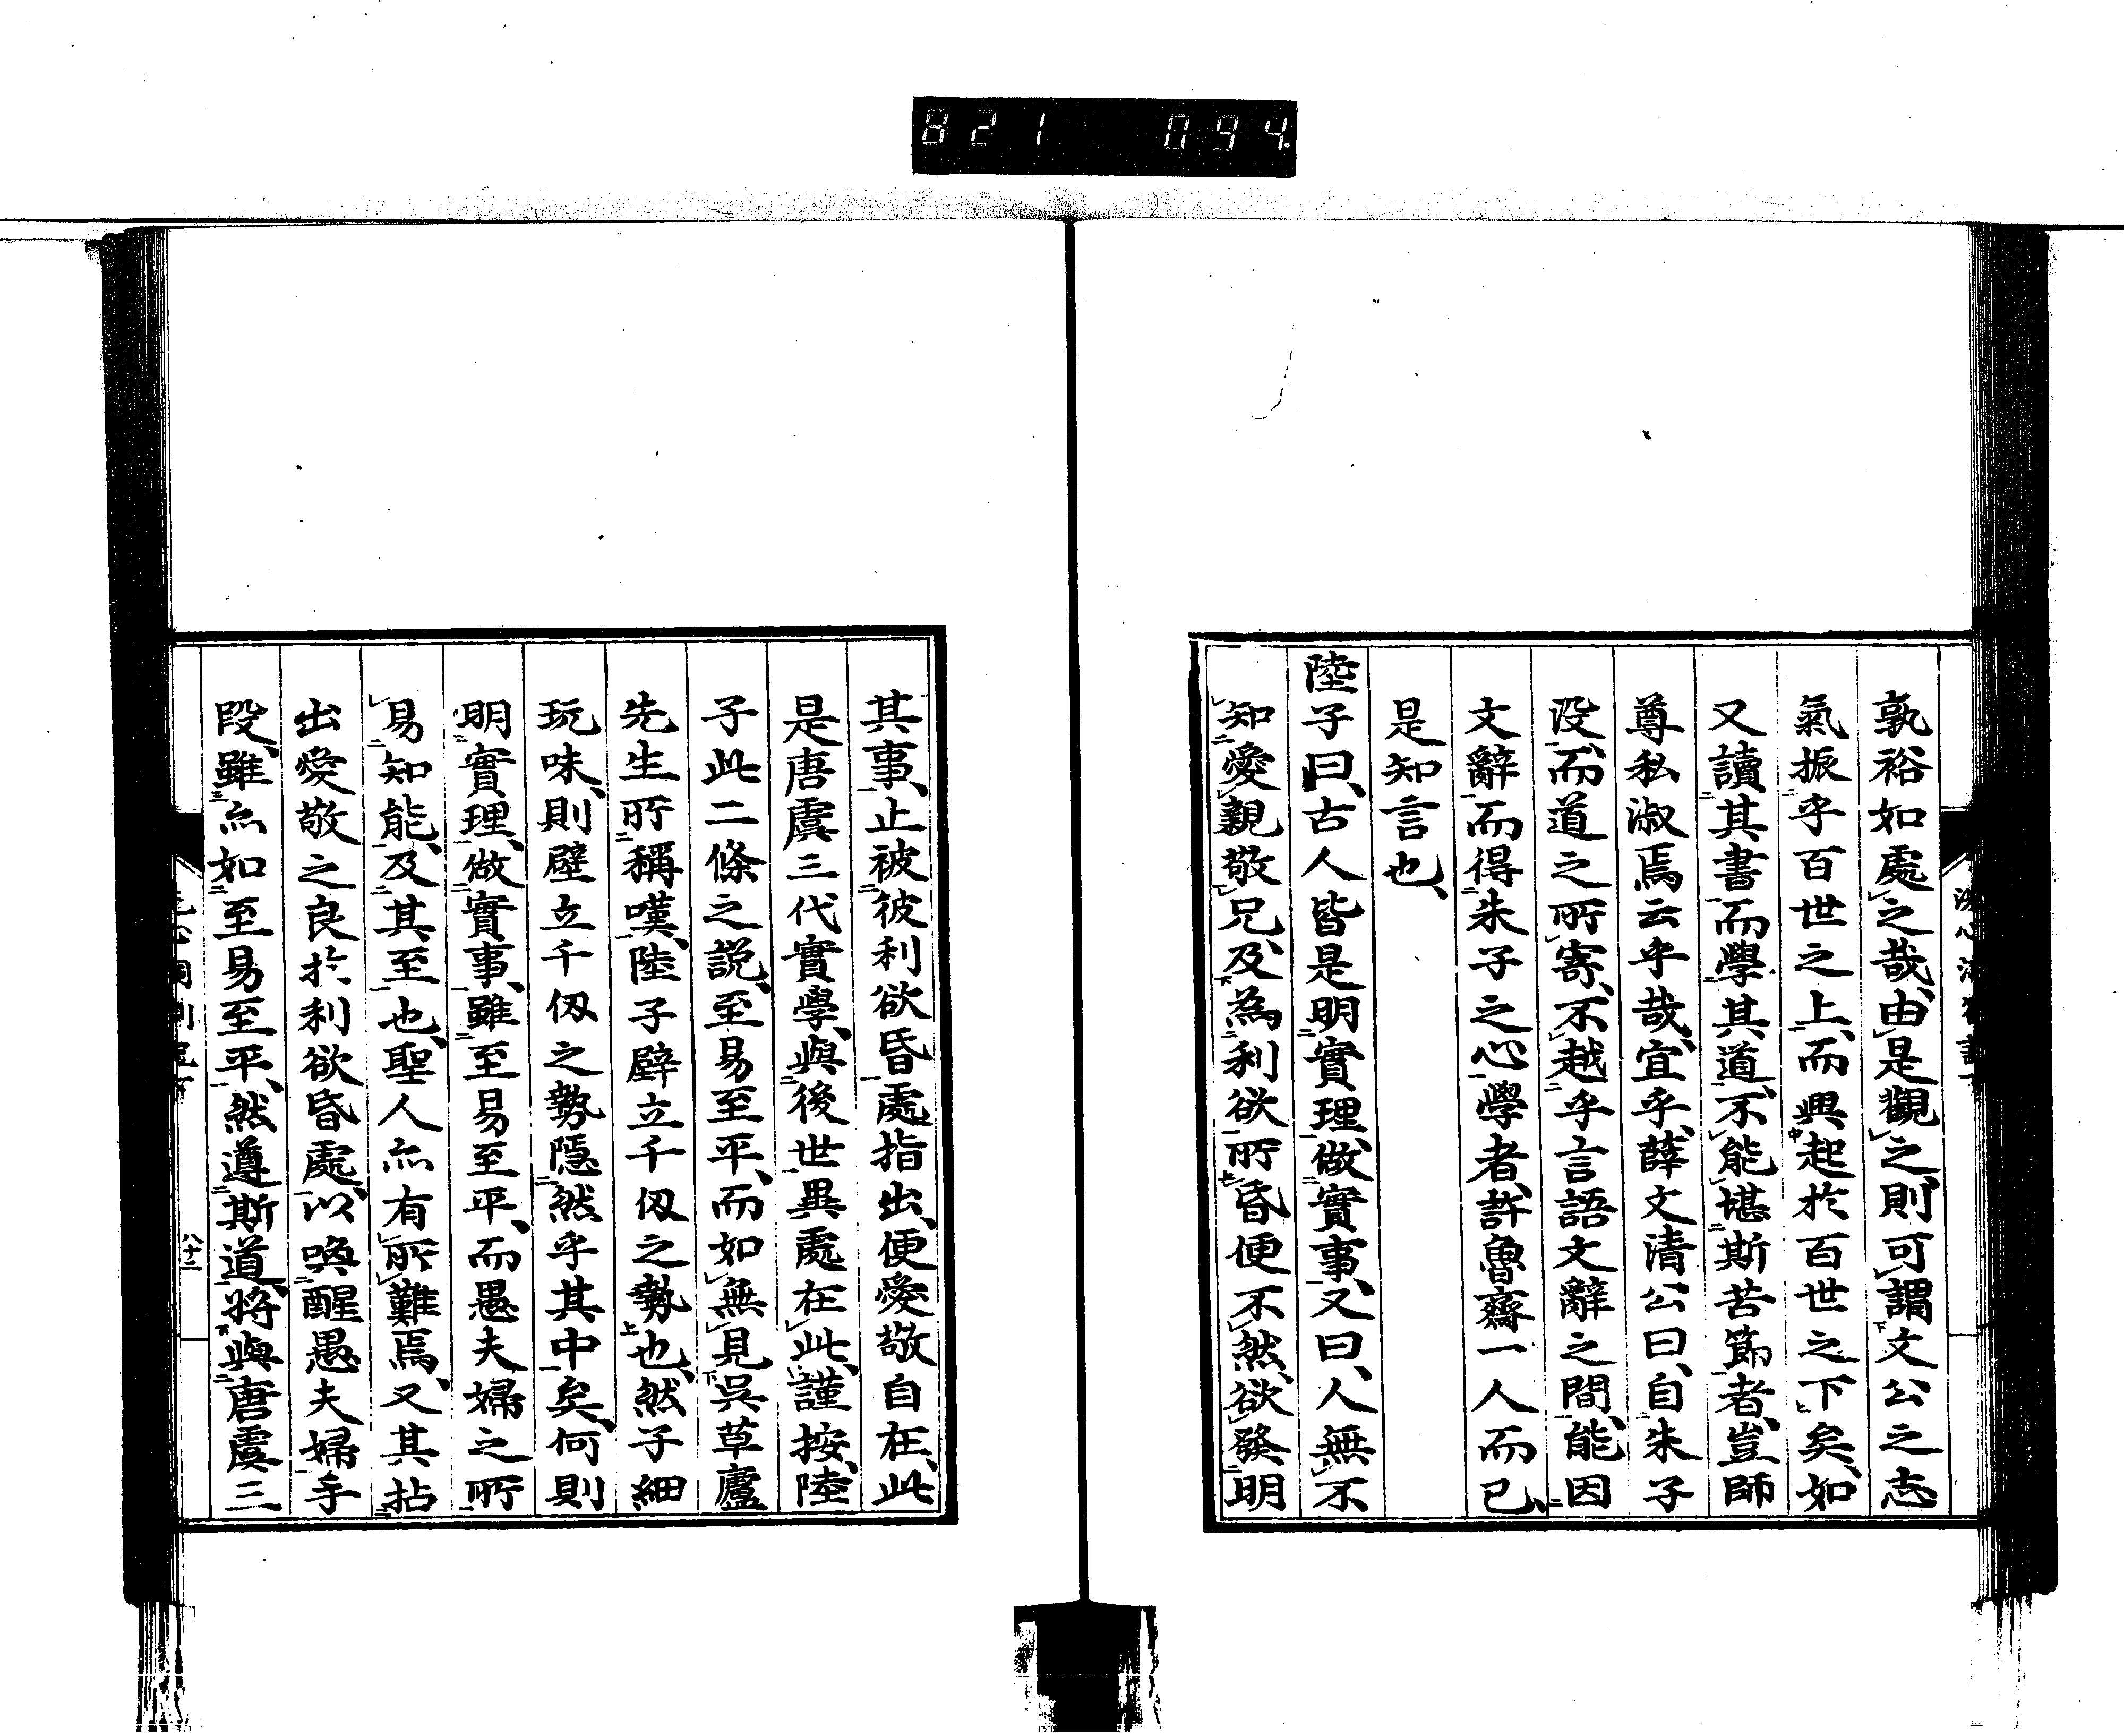 821 094.
孰裕如處之哉、由是觀之、則可謂文公之志
氣振乎百世之上、而興起於百世之下矣、如
又讀其書而學其道、不能堪斯苦節者、豈師
尊私淑焉云乎哉、宜乎、薛文清公曰、自朱子
沒、而道之所寄、不越乎言語文辭之間、能因
文辭而得朱子之心學者、許魯齋一人而已、
是知言也、
陸子曰、古人皆是明實理、做實事、又曰、人無不
知愛親敬兄、及為利欲所昏便不然、欲發明
其事、止被彼利欲昏處指出、便愛敬自在、此
是唐虞三代實學、與後世異處在此、謹按、陸
子此二條之説、至易至平、而如無見吳草廬
先生所稱嘆、陸子壁立千仭之勢也、然子細
玩味、則壁立千仭之勢隱然乎其中矣、何則
明實理、做實事、雖至易至平、而愚夫婦之所
易知能、及其至也、聖人亦有所難焉、又其拈
出愛敬之良於利欲昏處、以喚醒愚夫婦手
段、雖亦如至易至平、然遵斯道、將與唐虞三
八十三